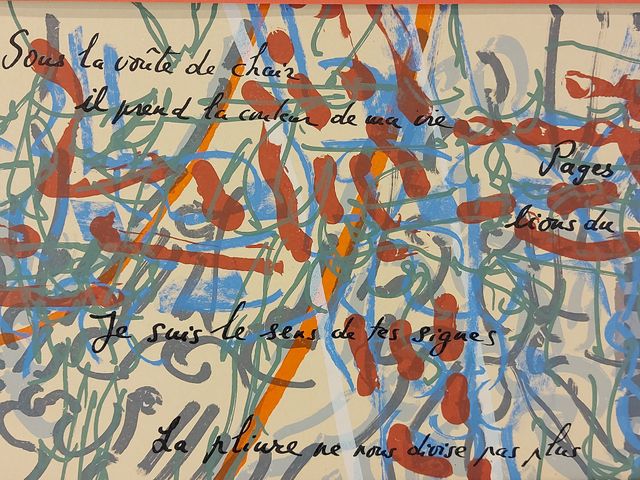 Sous la voûte de chair
il prend la couleur de ma vie
Pages
lions du
Je suis le sens de tes signes
La pliure ne nous divise pas plus